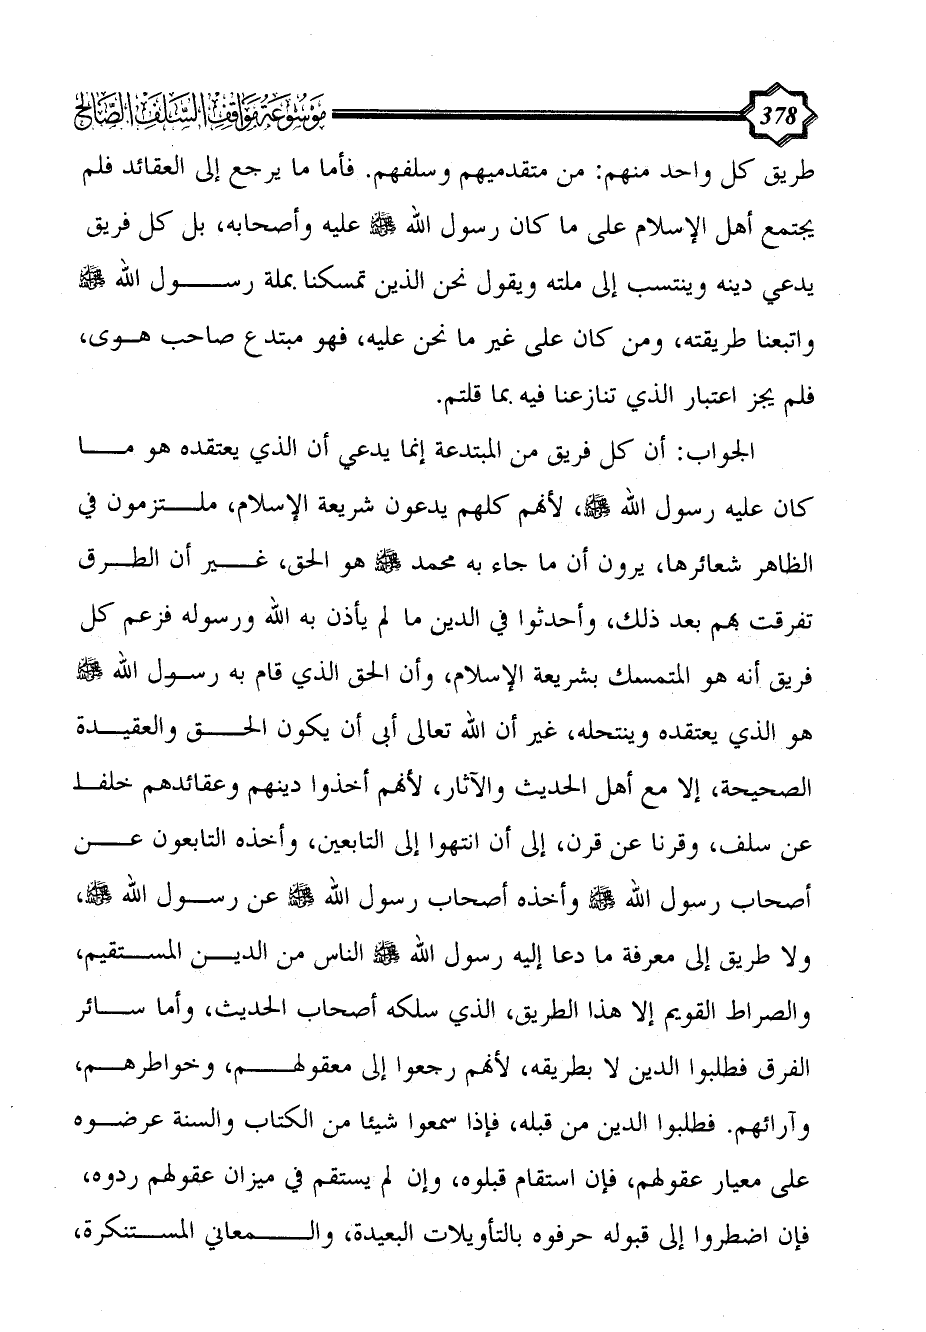 موسوعة مواقف السلف الصالح
378
طريق كل واحد منهم: من متقدميهم وسلفهم. فأما ما يرجع إلى العقائد فلم
يجتمع أهل الإسلام على ما كان رسول الله ﷺ عليه وأصحابه، بل كل فريق
يدعي دينه وينتسب إلى ملته ويقول نحن الذين تمسكنا بملة رسول الله ﷺ
واتبعنا طريقته، ومن كان على غير ما نحن عليه، فهو مبتدع صاحب هوى،
فلم يجز اعتبار الذي تنازعنا فيه بما قلتم.
الجواب: أن كل فريق من المبتدعة إنما يدعي أن الذي يعتقده هو ما
كان عليه رسول الله ﷺ، لأنهم كلهم يدعون شريعة الإسلام، ملتزمون في
الظاهر شعائرها، يرون أن ما جاء به محمد ﷺ هو الحق، غير أن الطرق
تفرقت بهم بعد ذلك، وأحدثوا في الدين ما لم يأذن به الله ورسوله فزعم كل
فريق أنه هو المتمسك بشريعة الإسلام، وأن الحق الذي قام به رسول الله ﷺ
هو الذي يعتقده وينتحله، غير أن الله تعالى أبى أن يكون الحق والعقيدة
الصحيحة، إلا مع أهل الحديث والآثار، لأنهم أخذوا دينهم وعقائدهم خلفا
عن سلف، وقرنا عن قرن، إلى أن انتهوا إلى التابعين، وأخذه التابعون عن
أصحاب رسول الله ﷺ وأخذه أصحاب رسول الله ﷺ عن رسول الله ﷺ،
ولا طريق إلى معرفة ما دعا إليه رسول الله ﷺ الناس من الدين المستقيم،
والصراط القويم إلا هذا الطريق، الذي سلكه أصحاب الحديث، وأما سائر
الفرق فطلبوا الدين لا بطريقه، لأنهم رجعوا إلى معقولهم، وخواطرهم،
وآرائهم. فطلبوا الدين من قبله، فإذا سمعوا شيئا من الكتاب والسنة عرضوه
على معيار عقولهم، فإن استقام قبلوه، وإن لم يستقم في ميزان عقولهم ردوه،
فإن اضطروا إلى قبوله حرفوه بالتأويلات البعيدة، والمعاني المستنكرة،